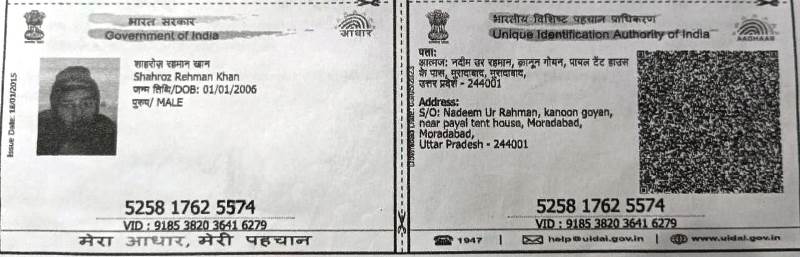 भारत सरकार
Government of India
आधार
Issue Date: 18/01/2015
शाहरोज़ रहमान खान
Shahroz Rehman Khan
जन्म तिथि/DOB: 01/01/2006
पुरुष/ MALE
5258 1762 5574
VID : 9185 3820 3641 6279
मेरा आधार, मेरी पहचान
भारतीय विशिष्ट पहचान प्राधिकरण
Unique Identification Authority of India
AADHAAR
Download Date:
पता:
आत्मज: नदीम उर रहमान, क़ानून गोयन, पायल टेंट हाउस
के पास, मुरादाबाद, मुरादाबाद,
उत्तर प्रदेश - 244001
Address:
S/O: Nadeem Ur Rahman, kanoon goyan,
near payal tent house, Moradabad,
Moradabad,
Uttar Pradesh - 244001
5258 1762 5574
VID : 9185 3820 3641 6279
1947 | help@uidai.gov.in | www.uidai.gov.in